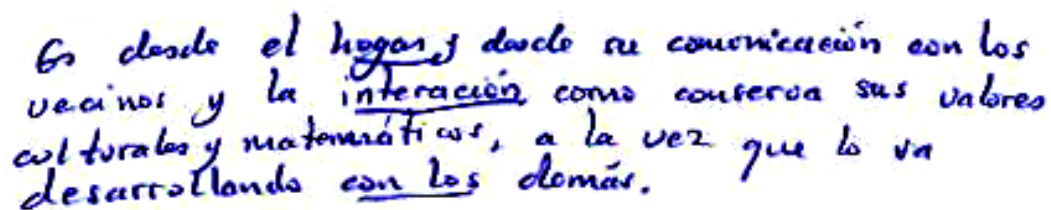 Es desde el hogar y desde su comunicación con los
vecinos y la interación como conserva sus valores
culturales y matemáticos, a la vez que lo va
desarrollando con los demás.